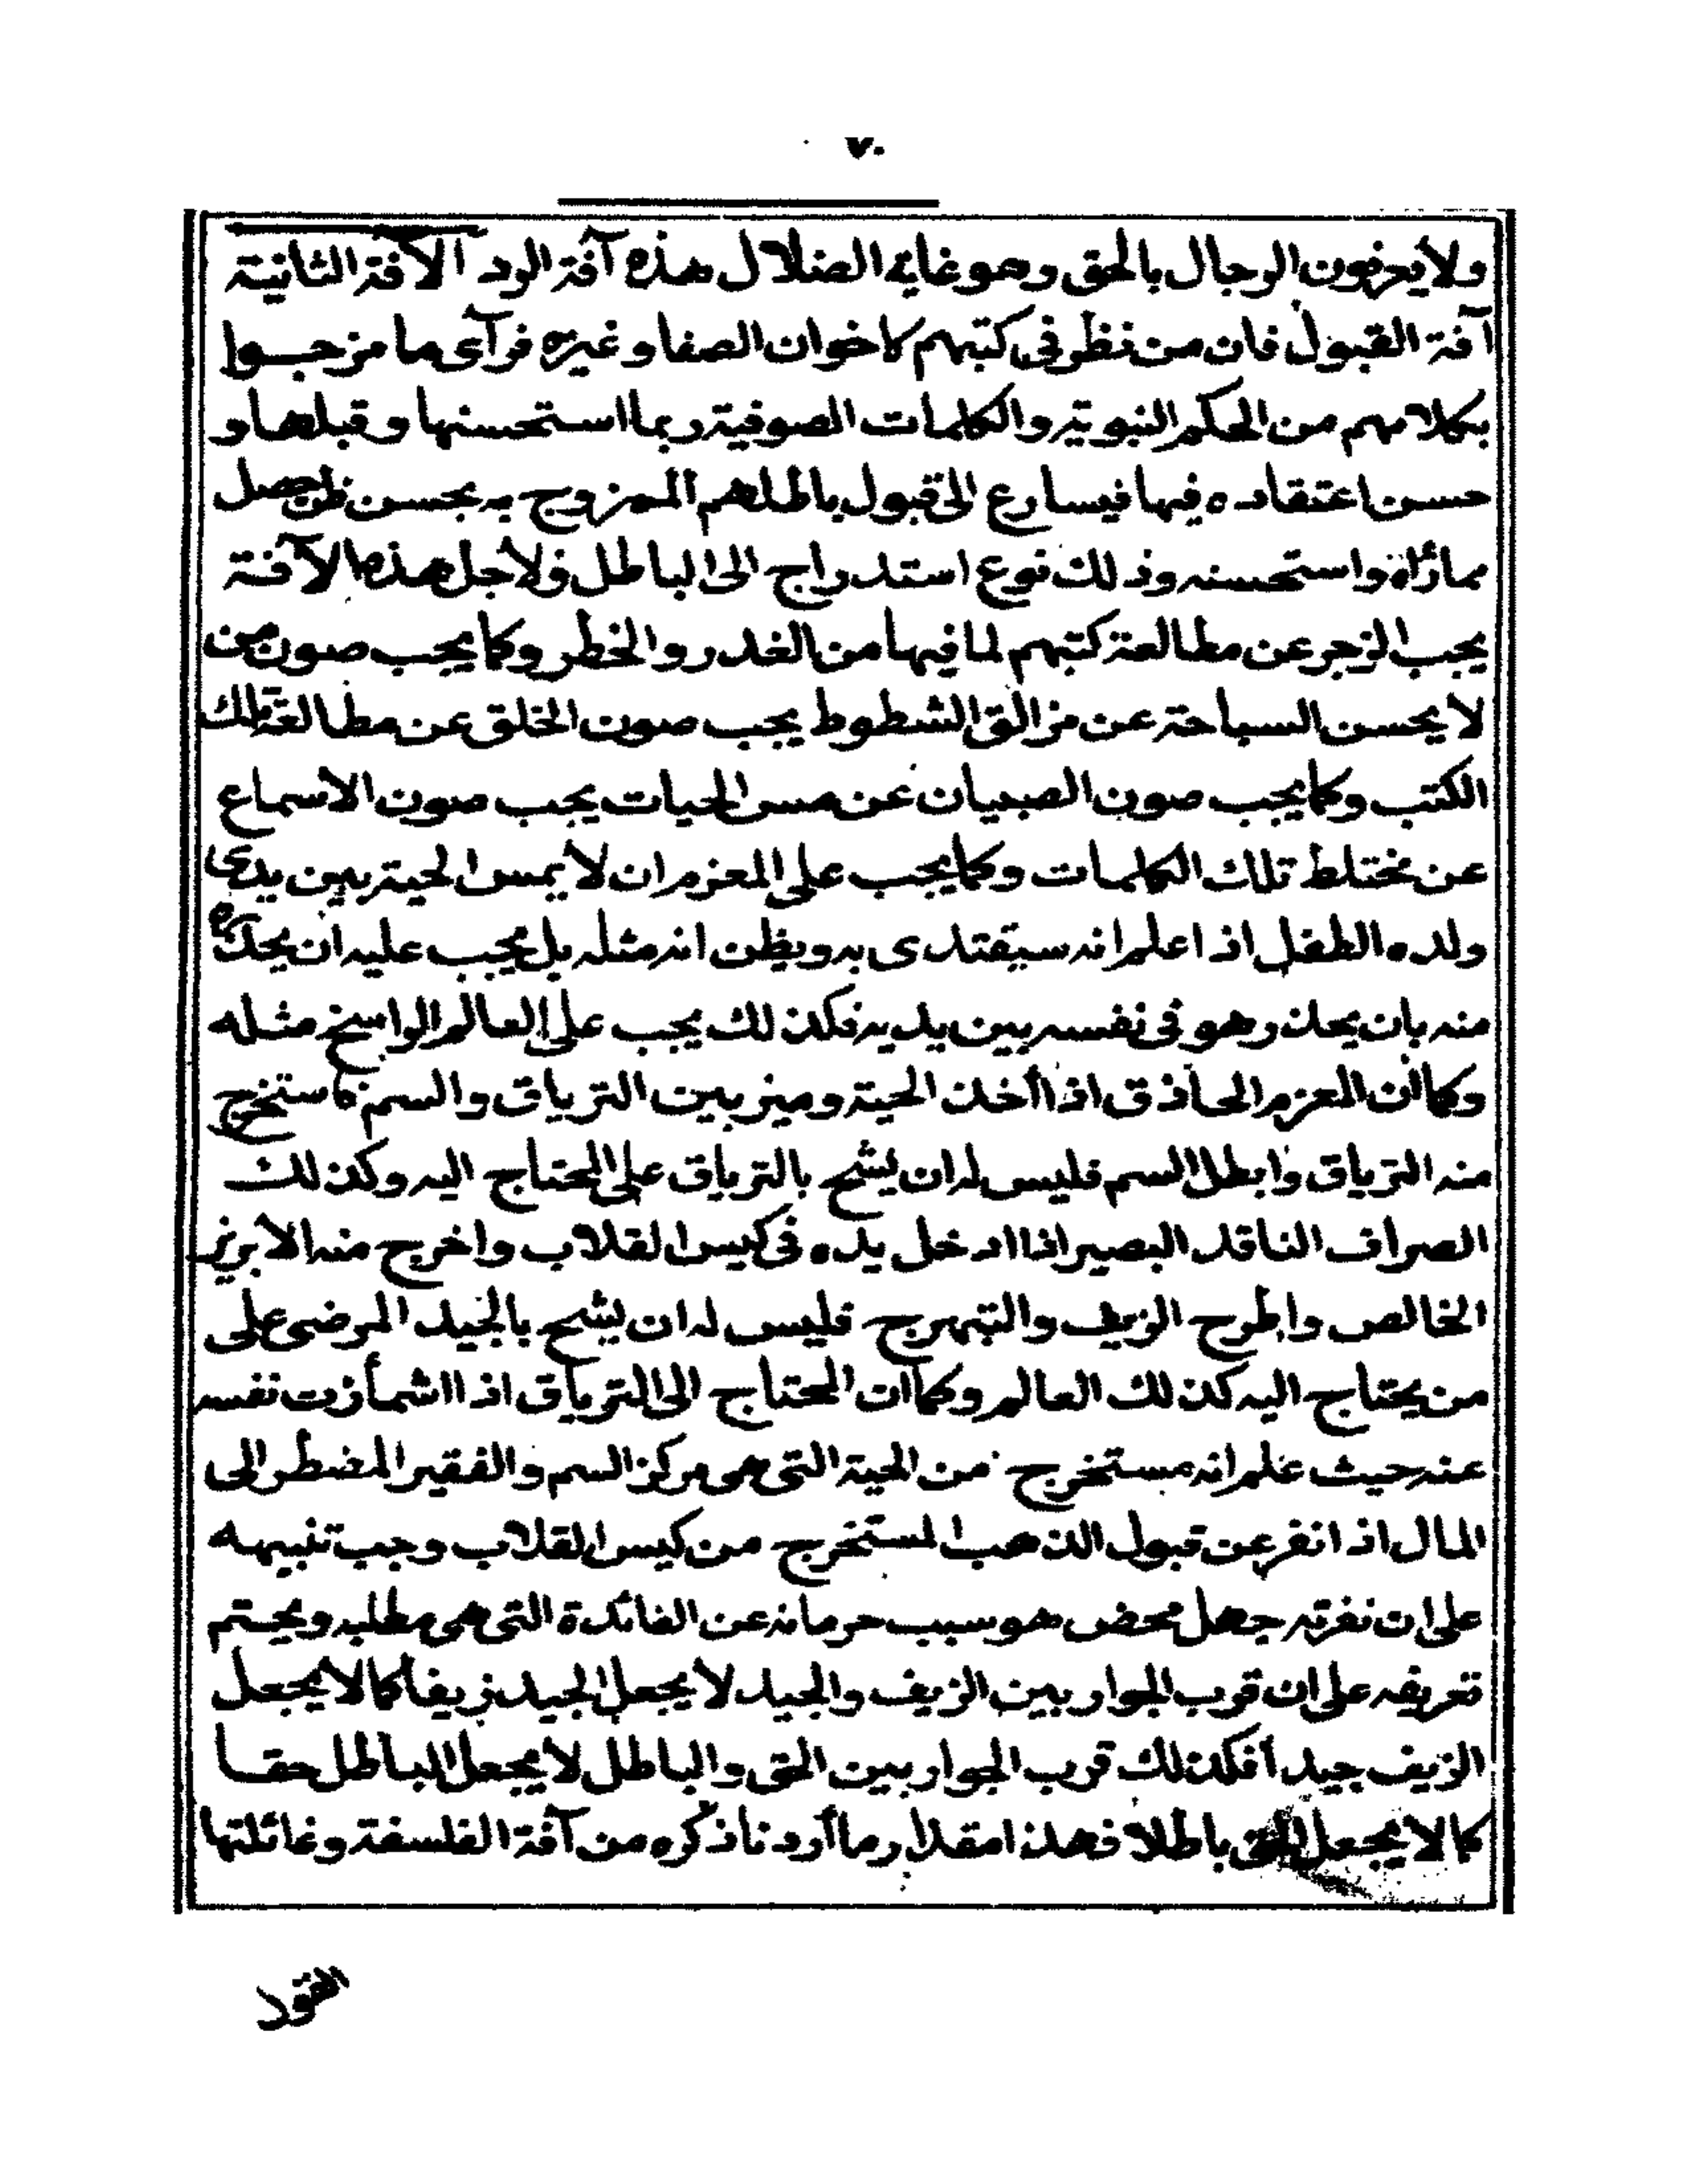 ٧٠
ولا يعرفون الرجال بالحق وهو غاية الضلال هذه آفة الرد الآفة الثانية
آفة القبول فان من نظر فى كتبهم كاخوان الصفا وغيره فرآى ما مزجوا
بكلامهم من الحكم النبوية والكلمات الصوفية ربما استحسنها وقبلها و
حسن اعتقاده فيها فيسارع الى قبول باطلهم الممزوج به بحسن ظن حصل
مما رٔاه واستحسنه وذلك نوع استدراج الى الباطل ولأجل هذه الآفة
يجب الزجر عن مطالعة كتبهم لما فيها من الغدر والخطر وكما يجب صون من
لا يحسن السباحة عن مزالق الشطوط يجب صون الخلق عن مطالعة تلك
الكتب وكما يجب صون الصبيان عن مس الحيات يجب صون الاسماع
عن مختلط تلك الكلمات وكما يجب على المعزم ان لا يمس الحية بين يدى
ولده الطفل اذا علم انه سيقتدى به ويظن انه مثله بل يجب عليه ان يحذره
منه بان يحذر هو فى نفسه بين يديه فكذلك يجب على العالم الراسخ مثله
وكما ان المعزم الحاذق اذا أخذ الحية وميز بين الترياق والسم فاستخرج
منه الترياق وابطل السم فليس له ان يشح بالترياق على المحتاج اليه وكذلك
الصراف الناقد البصير اذا ادخل يده فى كيس القلاب واخرج منه الابريز
الخالص واطرح الزيف والتبهرج فليس له ان يشح بالجيد المرضى على
من يحتاج اليه كذلك العالم وكما ان المحتاج الى الترياق اذا اشمأزت نفسه
عنه حيث علم انه مستخرج من الحية التى هى مركز السم والفقير المضطر الى
المال اذا نفر عن قبول الذهب المستخرج من كيس القلاب وجب تنبيهه
على ان نفرته جهل محض هو سبب حرمانه عن الفائدة التى هى مطلبه ويحتم
تعريفه على ان قرب الجوار بين الزيف والجيد لا يجعل الجيد زيفا كما لا يجعل
الزيف جيدا فكذلك قرب الجوار بين الحق والباطل لا يجعل الباطل حقا
كما لا يجعل الحق باطلا فهذا مقدار ما أردنا ذكره من آفة الفلسفة وغائلتها
القود